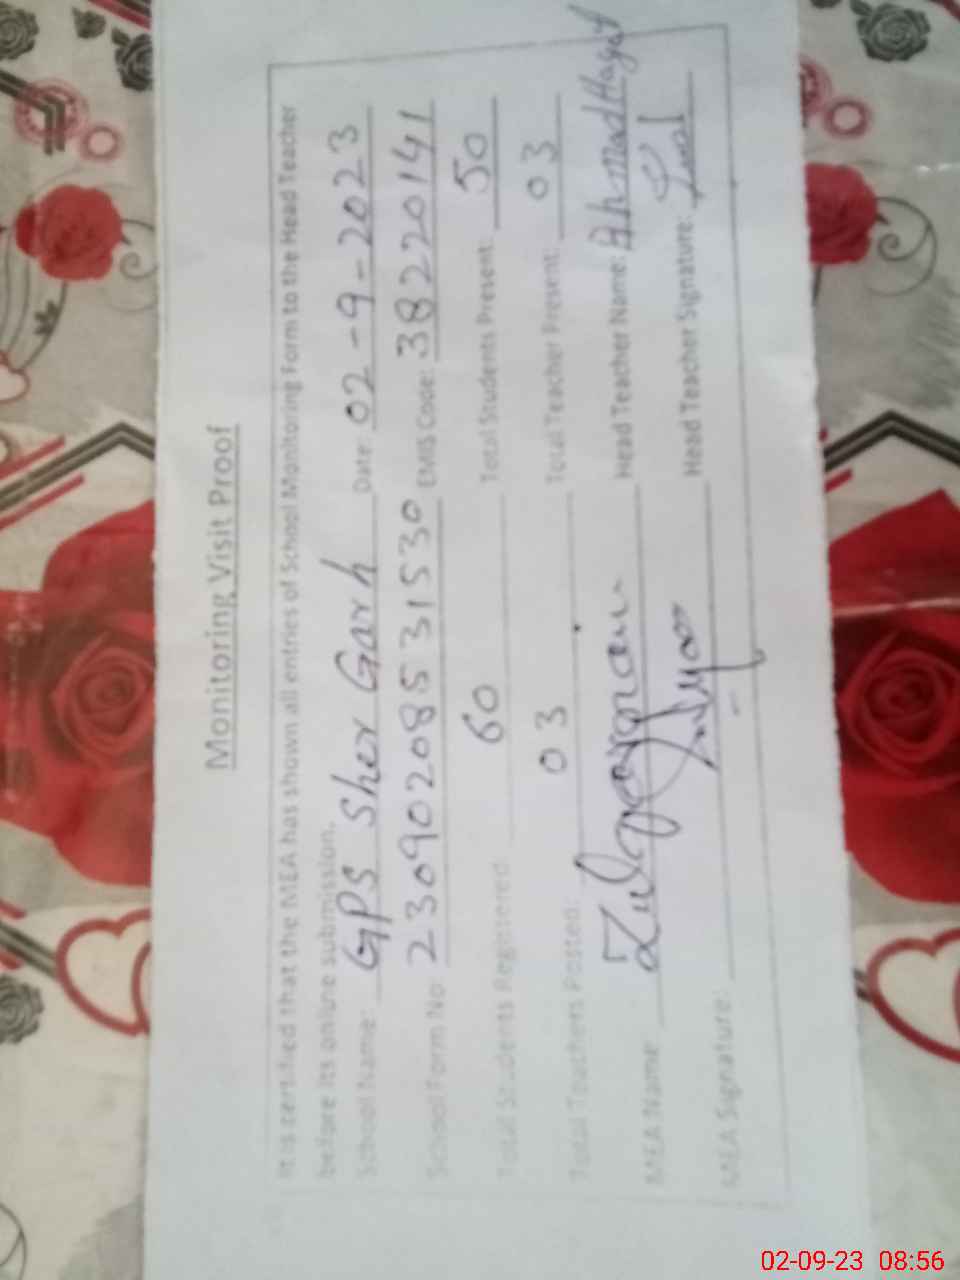 Monitoring Visit Proof
It is certified that the MEA has shown all entries of School Monitoring Form to the Head Teacher
before its online submission.
School Name: GPS Sher Garh Date: 02-9-2023
School Form No: 23090208531530 EMIS Code: 38220141
Total Students Registered: 60 Total Students Present: 50
Total Teachers Posted: 03 Total Teacher Present: 03
MEA Name: Head Teacher Name: Ahmad Hayat
MEA Signature: Head Teacher Signature:
02-09-23 08:56